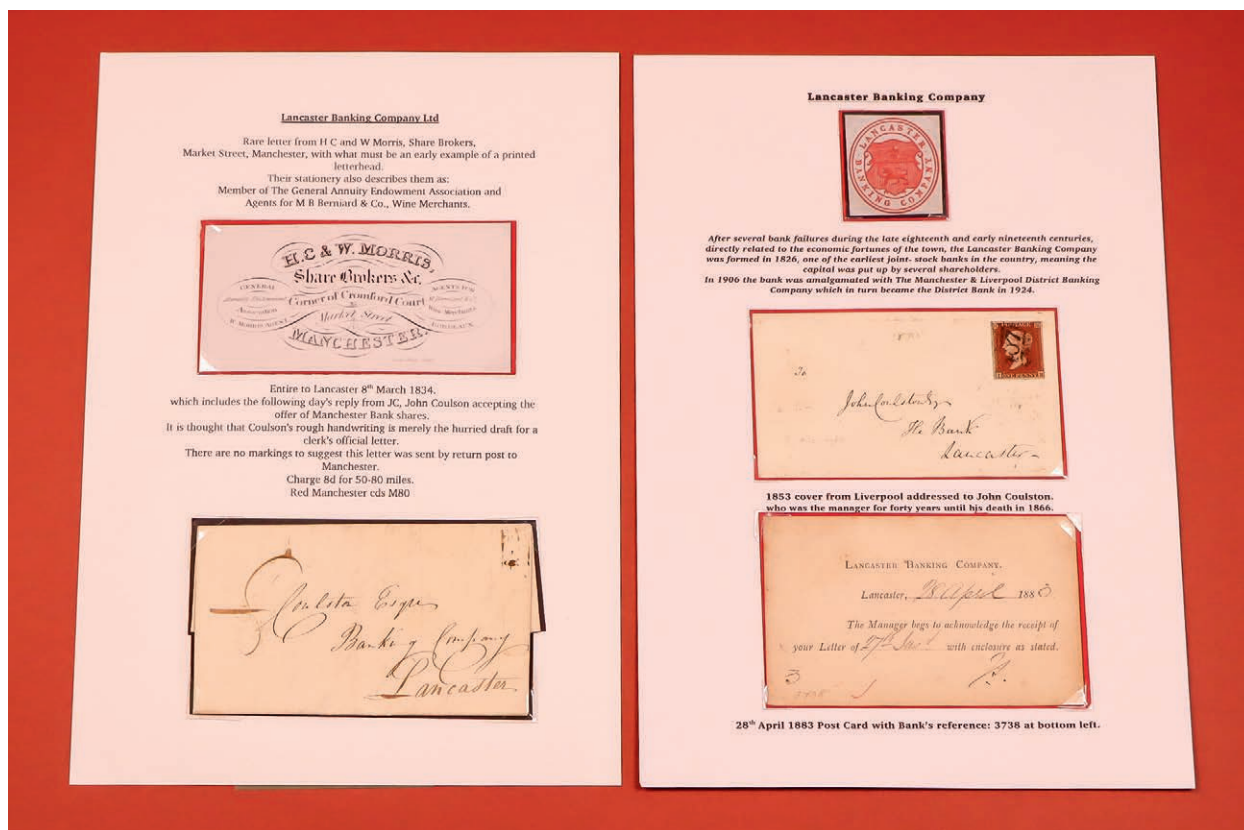 Lancaster Banking Company Ltd
Rare letter from H C and W Morris, Share Brokers,
Market Street, Manchester, with what must be an early example of a printed
letterhead.
Their stationery also describes them as:
Member of The General Annuity Endowment Association and
Agents for M B Berniard & Co., Wine Merchants.
H.C & W. MORRIS,
Share Brokers &c.
GENERAL
Association
Corner of Cromford Court
&
Market Street
MANCHESTER.
Entire to Lancaster 8th March 1834.
which includes the following day's reply from JC, John Coulson accepting the
offer of Manchester Bank shares.
It is thought that Coulson's rough handwriting is merely the hurried draft for a
clerk's official letter.
There are no markings to suggest this letter was sent by return post to
Manchester.
Charge 8d for 50-80 miles.
Red Manchester cds M80
Coulston Esqre
Banking Company
Lancaster
Lancaster Banking Company
LANCASTER BANKING COMPANY
After several bank failures during the late eighteenth and early nineteenth centuries,
directly related to the economic fortunes of the town, the Lancaster Banking Company
was formed in 1826, one of the earliest joint- stock banks in the country, meaning the
capital was put up by several shareholders.
In 1906 the bank was amalgamated with The Manchester & Liverpool District Banking
Company which in turn became the District Bank in 1924.
POSTAGE
ONE PENNY
To
John Coulston Esqr
The Bank
Lancaster
1853 cover from Liverpool addressed to John Coulston.
who was the manager for forty years until his death in 1866.
LANCASTER BANKING COMPANY.
Lancaster, 28 April 1883
The Manager begs to acknowledge the receipt of
your Letter of 27th with enclosure as stated.
3
3738
28th April 1883 Post Card with Bank's reference: 3738 at bottom left.